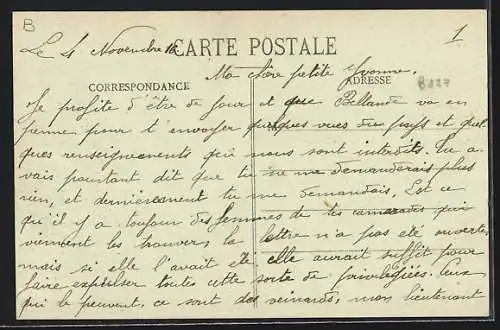 B
1
Le 4 Novembre 16
CARTE POSTALE
Ma chère petite Yvonne.
CORRESPONDANCE
ADRESSE
Je profite d'être de jour et que Bellande va en
perme pour t'envoyer quelques vues du pays et quel-
ques renseignements qui nous sont interdits. Tu a-
vais pourtant dit que tu ne me demanderais plus
rien, et dernièrement tu me demandais, Est ce
qu'il y a toujours des femmes de tes camarades qui
viennent les trouver, la lettre n'a pas été ouverte
mais si elle l'avait été elle aurait suffit pour
faire expulser toutes cette sorte de privilégiées. Ceux
qui le peuvent, ce sont des veinards, mon lieutenant